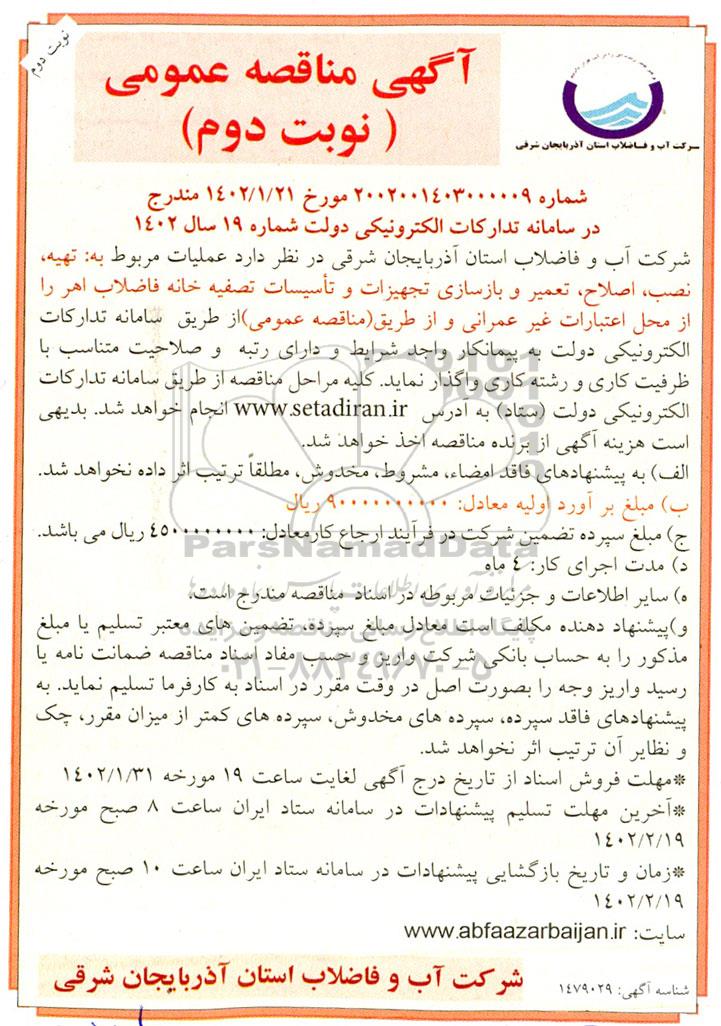 نوبت دوم
آگهی مناقصه عمومی
( نوبت دوم)
شرکت آب و فاضلاب استان آذربایجان شرقی
شماره ۲۰۰۲۰۰۱۴۰۳۰۰۰۰۰۹ مورخ ۱۴۰۲/۱/۲۱ مندرج
در سامانه تدارکات الکترونیکی دولت شماره ۱۹ سال ۱۴۰۲
شرکت آب و فاضلاب استان آذربایجان شرقی در نظر دارد عملیات مربوط به: تهیه،
نصب، اصلاح، تعمیر و بازسازی تجهیزات و تأسیسات تصفیه خانه فاضلاب اهر را
از محل اعتبارات غیر عمرانی و از طریق(مناقصه عمومی)از طریق سامانه تدارکات
الکترونیکی دولت به پیمانکار واجد شرایط و دارای رتبه و صلاحیت متناسب با
ظرفیت کاری و رشته کاری واگذار نماید. کلیه مراحل مناقصه از طریق سامانه تدارکات
الکترونیکی دولت (ستاد) به آدرس www.setadiran.ir انجام خواهد شد. بدیهی
است هزینه آگهی از برنده مناقصه اخذ خواهد شد.
الف) به پیشنهادهای فاقد امضاء، مشروط، مخدوش، مطلقاً ترتیب اثر داده نخواهد شد.
ب) مبلغ بر آورد اولیه معادل: ۹۰۰۰۰۰۰۰۰۰۰ ریال
ج) مبلغ سپرده تضمین شرکت در فرآیند ارجاع کارمعادل: ۴۵۰۰۰۰۰۰۰۰ ریال می باشد.
ParsNamadData
د) مدت اجرای کار: ۴ ماه
ه) سایر اطلاعات و جزئیات مربوطه در اسناد مناقصه مندرج است.
و)پیشنهاد دهنده مکلف است معادل مبلغ سپرده، تضمین های معتبر تسلیم یا مبلغ
مذکور را به حساب بانکی شرکت واریز و حسب مفاد اسناد مناقصه ضمانت نامه یا
۰۲۱-۸۸۳۴۹۶۷۰-۵
رسید واریز وجه را بصورت اصل در وقت مقرر در اسناد به کارفرما تسلیم نماید. به
پیشنهادهای فاقد سپرده، سپرده های مخدوش، سپرده های کمتر از میزان مقرر، چک
و نظایر آن ترتیب اثر نخواهد شد.
*مهلت فروش اسناد از تاریخ درج آگهی لغایت ساعت ۱۹ مورخه ۱۴۰۲/۱/۳۱
*آخرین مهلت تسلیم پیشنهادات در سامانه ستاد ایران ساعت ۸ صبح مورخه
۱۴۰۲/۲/۱۹
*زمان و تاریخ بازگشایی پیشنهادات در سامانه ستاد ایران ساعت ۱۰ صبح مورخه
۱۴۰۲/۲/۱۹
سایت: www.abfaazarbaijan.ir
شناسه آگهی: ۱۴۷۹۰۲۹
شرکت آب و فاضلاب استان آذربایجان شرقی